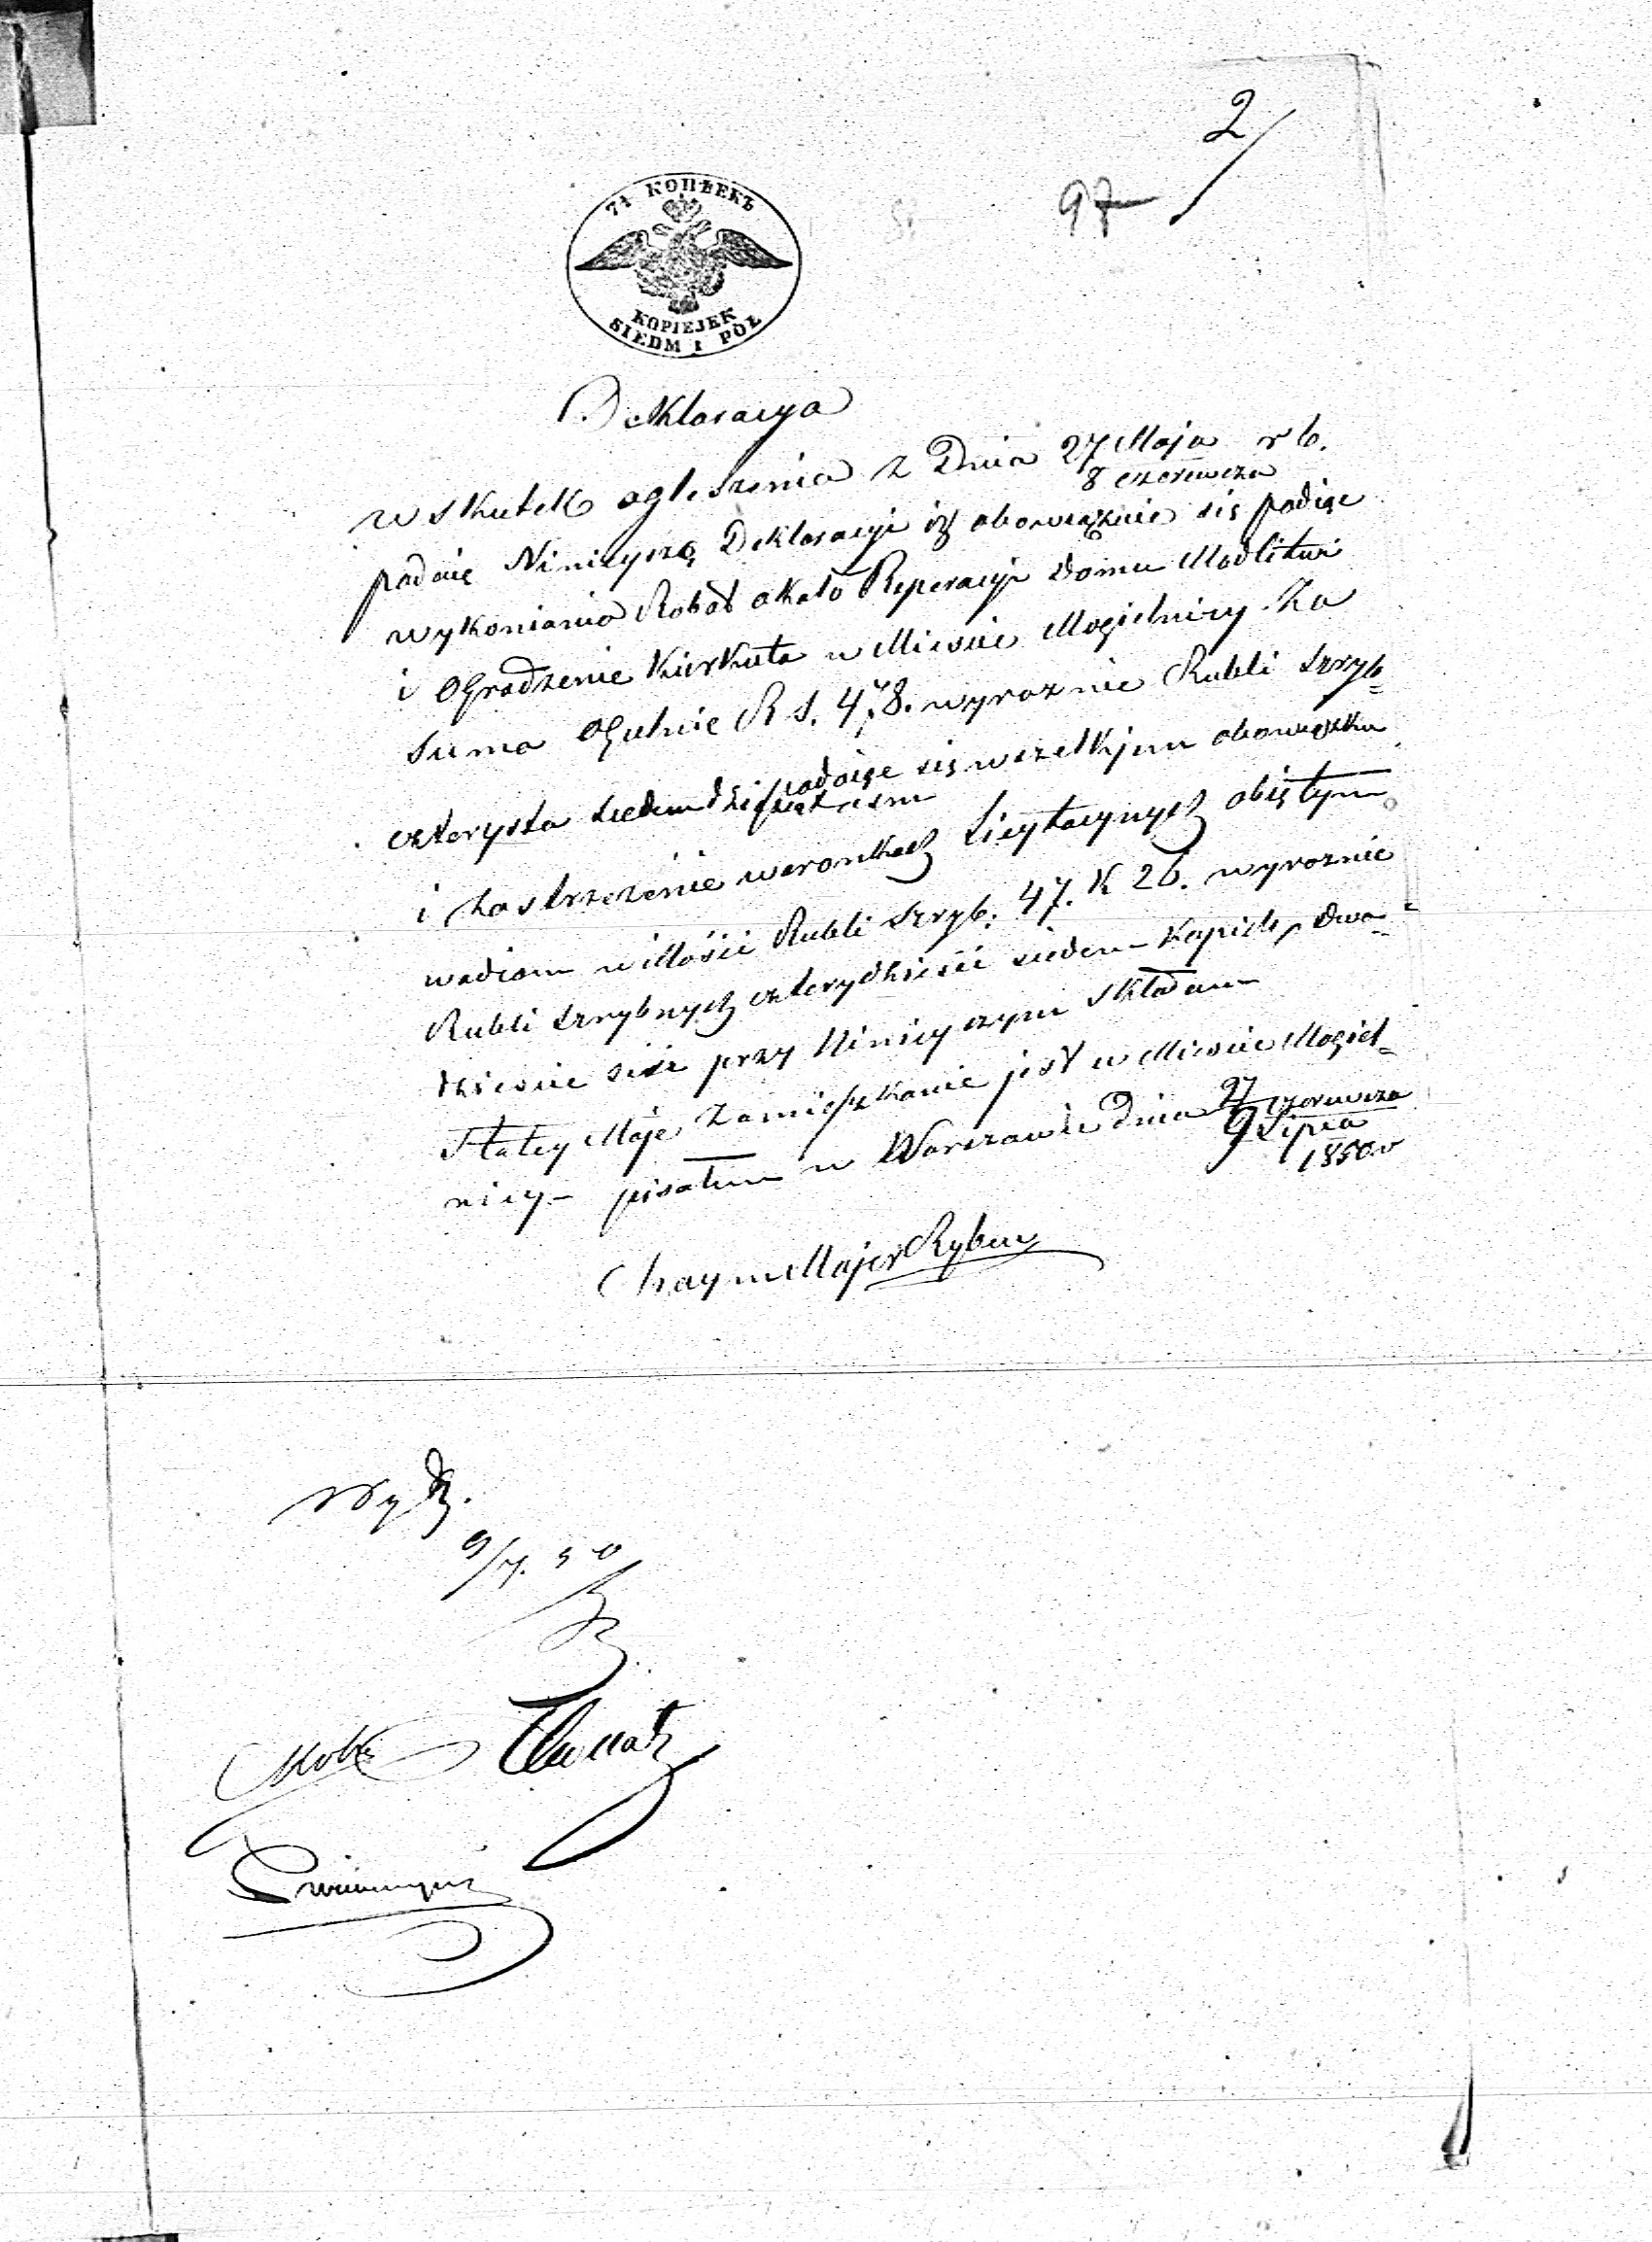 2/
97
7½ КОПѢЕКЪ
KOPIEJEK
SIEDM I PÓŁ
Deklaracya
w skutek ogłoszenia z Dnia 27 Maja r b.
8 czerwcza
podaię Ninieyszą Deklaracyi iż obowiązuie się podiąc
wykonania Robót około Reperacyi domu Modlitwi
i Ogradzenie Kirkuta w Miescie Mogielnicy za
Suma Ogulnie R s. 478. wyroznie Rubli szryb=
czterysta siedemdziesiąt osm
podaięc się wszelkjem obowiązku
i zastrzezenie waronkach Licytacynych obiętym
wadiom w ilłości Rubli szryb. 47. K 26. wyroznie
Rubli szrybnych czterydzieści siedem Kopiek, dwa=
dziescie sześ przy Ninieyszym Składam
Stałey Moje Zamieszkanie jest w Miescie Mogiel=
nicy - pisałem w Warszawie dnia 27 czerwcza
9 Lipca
1850 r
Chaym Majer Ryben
9/7. 50